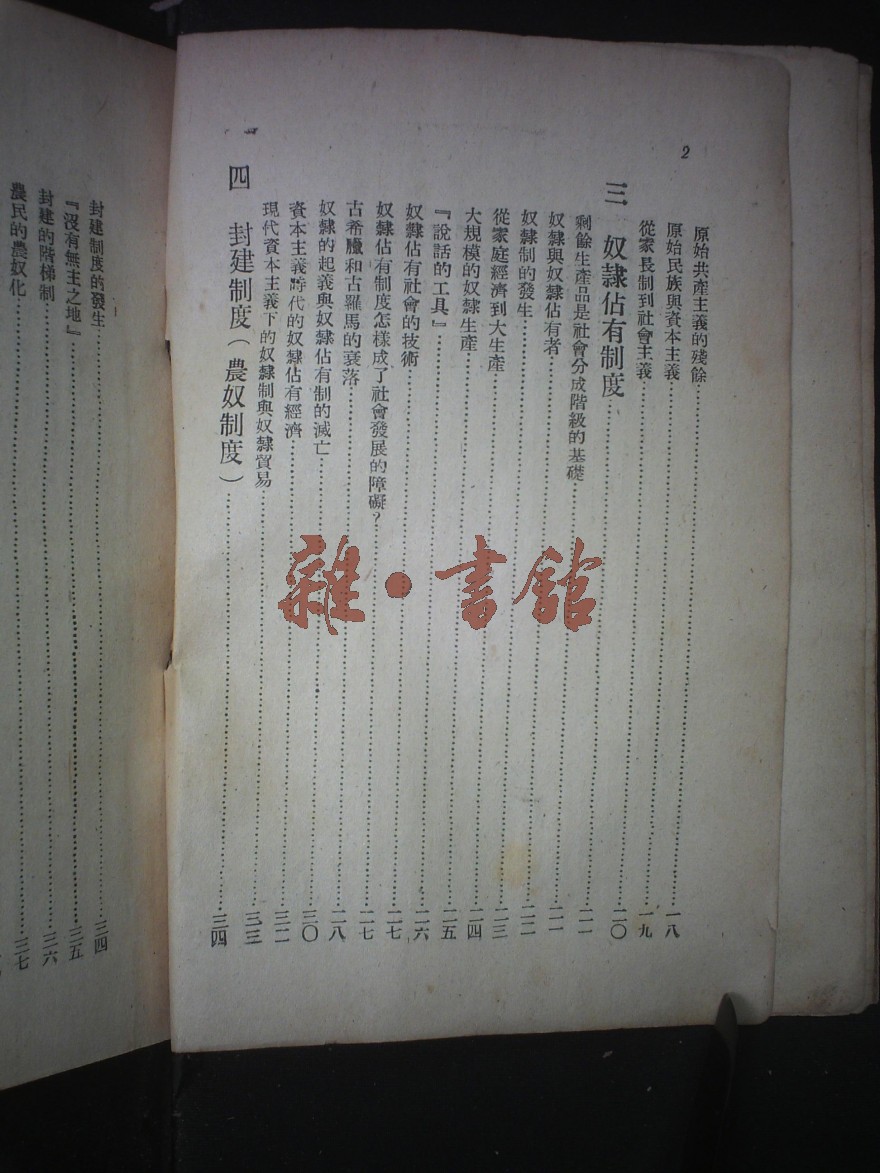 2
原始共產主義的殘餘……一八
原始民族與資本主義……一九
從家長制到社會主義……二〇
三 奴隸佔有制度……二一
剩餘生產品是社會分成階級的基礎……二一
奴隸與奴隸佔有者……二二
奴隸制的發生……二三
從家庭經濟到大生產……二四
大規模的奴隸生產……二五
『說話的工具』……二六
奴隸佔有社會的技術……二七
奴隸佔有制度怎樣成了社會發展的障礙？……二七
古希臘和古羅馬的衰落……二八
奴隸的起義與奴隸佔有制的滅亡……三〇
資本主義時代的奴隸佔有經濟……三二
現代資本主義下的奴隸制與奴隸貿易……三三
四 封建制度（農奴制度）……三四
封建制度的發生……三四
『沒有無主之地』……三五
封建的階梯制……三六
農民的農奴化……三七
雜·書館